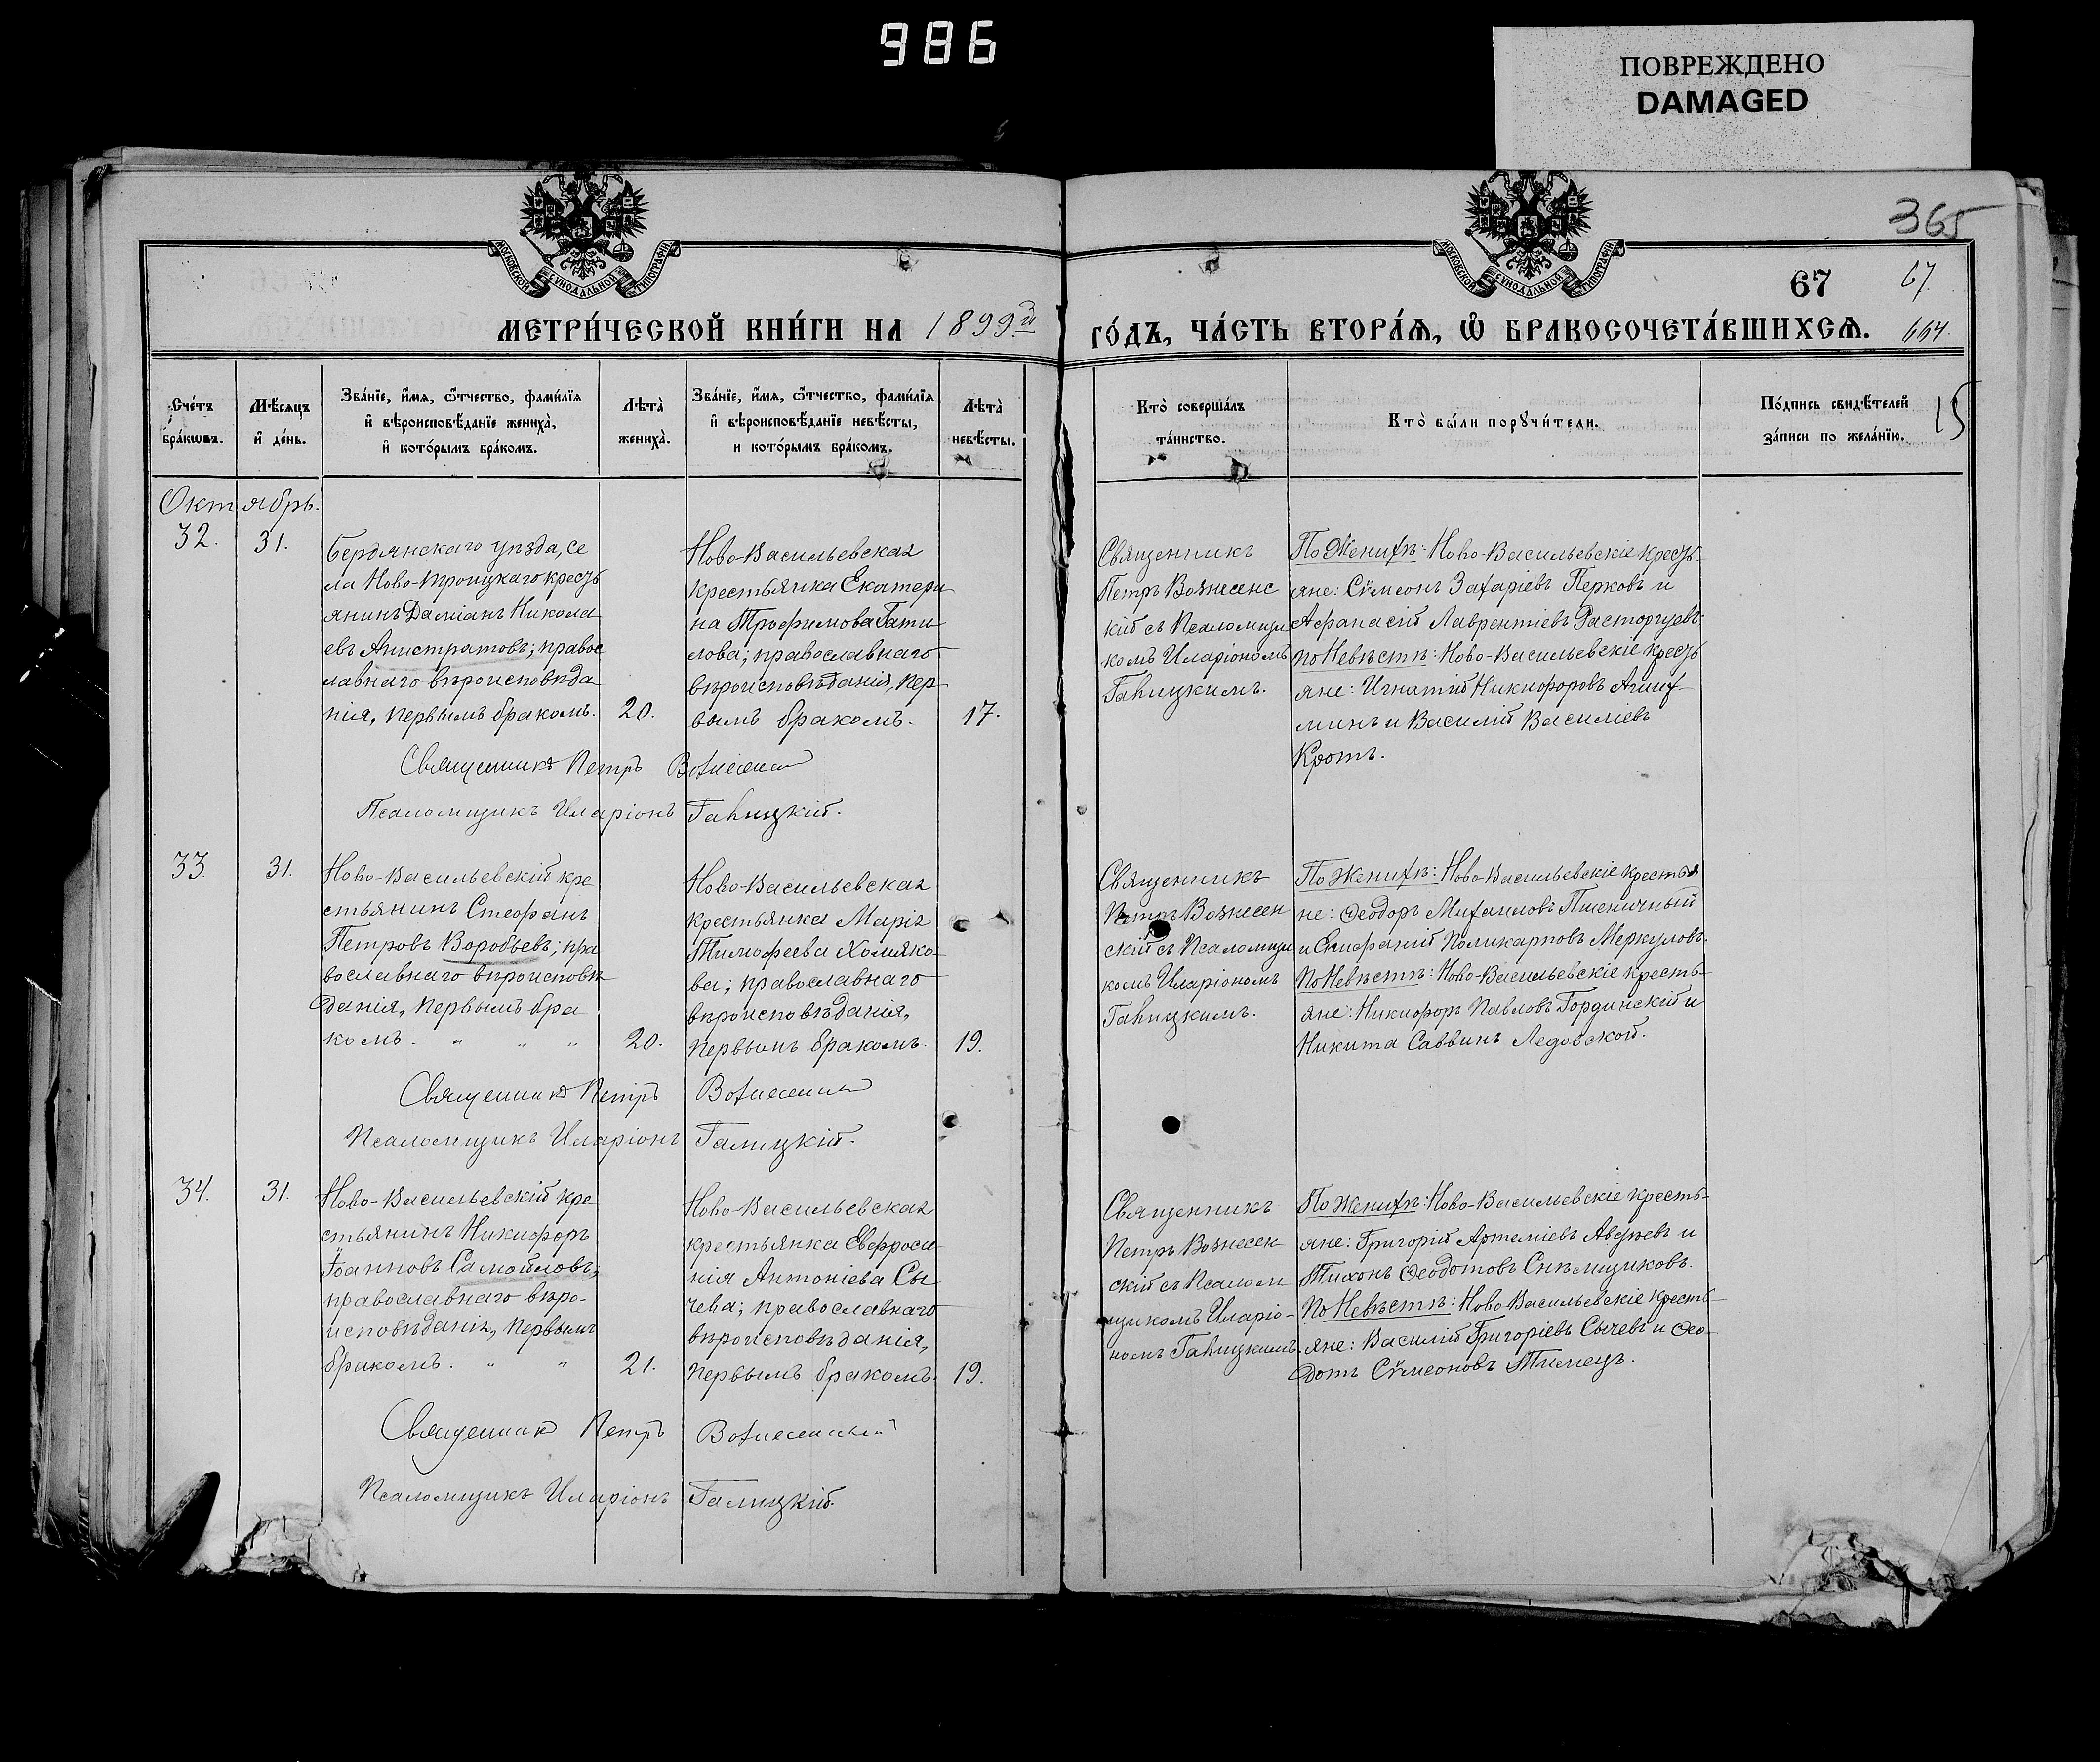 986
ПОВРЕЖДЕНО
DAMAGED
365
МОСКОВСКОЙ СУНОДАЛЬНОЙ ТИПОГРАФІИ
МОСКОВСКОЙ СУНОДАЛЬНОЙ ТИПОГРАФІИ
67
67
МЕТРИ́ЧЕСКОЙ КНИ́ГИ НА 1899й
ГО́ДЪ, ЧА́СТЬ ВТОРА́Я, Ѡ БРАКОСОЧЕТА́ВШИХСЯ.
664.
15
Сче́тъ бра́кωвъ.
Мѣ́сяцъ и҆ де́нь.
Зва́нїе, и҆́мя, ѻ҆́тчество, фами́лїя и҆ вѣроисповѣ́данїе жениха̀, и҆ кото́рымъ бра́комъ.
Лѣта̀ жениха̀.
Зва́нїе, и҆́мя, ѻ҆́тчество, фами́лїя и҆ вѣроисповѣ́данїе невѣ́сты, и кото́рымъ бра́комъ.
Лѣта̀ невѣ́сты.
Кто̀ соверша́лъ та́инство.
Кто̀ бы́ли порꙋчи́тели.
По́дпись свидѣ́телей за́писи по жела́нїю.
Октябрь.
32.
31.
Бердянскаго уѣзда, се
ла Ново-Троицкаго кресть
янинъ Даміанъ Никола
евъ Апистратовъ; правос
лавнаго вѣроисповѣда
нія, первымъ бракомъ.
20.
Ново-Васильевская
крестьянка Екатери
на Трофимова Гати
лова; православнаго
вѣроисповѣданія, пер
вымъ бракомъ.
17.
Священникъ
Петръ Вознесенс
кій съ Псаломщи
комъ Иларіономъ
Галицкимъ.
По Женихѣ: Ново-Васильевскіе кресть
яне: Сѵмеонъ Захаріевъ Перковъ и
Афанасій Лаврентіевъ Расторгуевъ
по Невѣстѣ: Ново-Васильевскіе кресть
яне: Игнатій Никифоровъ
и Василій Василіевъ
Кротъ.
Священникъ Петръ Вознесенскій
Псаломщикъ Иларіонъ Галицкій.
33.
31.
Ново-Васильевскій кре
стьянинъ Стефанъ
Петровъ Воробьевъ; пра
вославнаго вѣроисповѣ
данія, первымъ бра
комъ. " " "
20.
Ново-Васильевская
крестьянка Марія
Тимофеева Хомяко
ва; православнаго
вѣроисповѣданія,
первымъ бракомъ.
19.
Священникъ
Петръ Вознесен
скій съ Псаломщи
комъ Иларіономъ
Галицкимъ.
По Женихѣ: Ново-Васильевскіе крестья
не: Ѳеодоръ Михаиловъ Пшеничный
и Епифаній Поликарповъ Меркуловъ.
по Невѣстѣ: Ново-Васильевскіе кресть-
яне: Никифоръ Павловъ Гординскій и
Никита Саввинъ Ледовской.
Священникъ Петръ Вознесенскій
Псаломщикъ Иларіонъ Галицкій.
34.
31.
Ново-Васильевскій кре-
стьянинъ Никифоръ
Іоанновъ Самойловъ;
православнаго вѣро-
исповѣданія, первымъ
бракомъ. " "
21.
Ново-Васильевская
крестьянка Евфроси
нія Антоніева Сы
чева; православнаго
вѣроисповѣданія,
первымъ бракомъ.
19.
Священникъ
Петръ Вознесен
скій съ Псалом
щикомъ Иларіо-
номъ Галицкимъ.
По Женихѣ: Ново-Васильевскіе кресть-
яне: Григорій Артеміевъ Авдѣевъ и
Тихонъ Ѳеодотовъ Снѣмщиковъ.
по Невѣстѣ: Ново-Васильевскіе кресть-
яне: Василій Григоріевъ Сычевъ и Ѳео-
дотъ Сѵмеоновъ Тимецъ.
Священникъ Петръ Вознесенскій
Псаломщикъ Иларіонъ Галицкій.